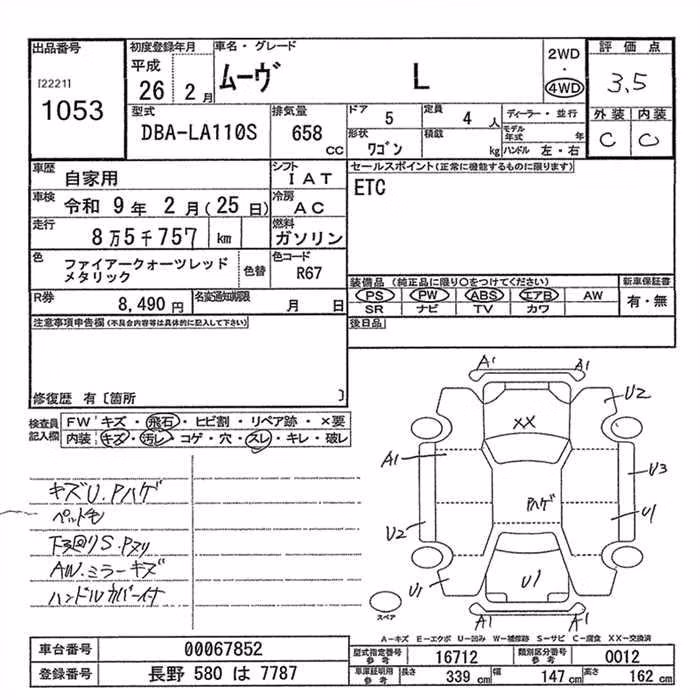 出品番号
[2221]
1053
初度登録年月
平成
26 2月
車名・グレード
ムーヴ L
2WD
・
4WD
評価点
3.5
外装 内装
C C
型式
DBA-LA110S
排気量
658 CC
ドア 5
定員 4 人
形状 ワゴン
積載 kg
ディーラー・並行
モデル年式 年
ハンドル 左・右
車歴 自家用
シフト IAT
車検 令和 9年 2月(25日)
冷房 AC
走行 8万5千757 km
燃料 ガソリン
色 ファイアークォーツレッドメタリック
色替
色コード R67
R券 8,490 円
名変通知期限 月 日
セールスポイント(正常に機能するものに限ります)
ETC
装備品 (純正品に限り○をつけてください)
新車保証書
PS PW ABS エアB AW
有・無
SR ナビ TV カワ
後日品
注意事項申告欄(不具合内容等は具体的に記入して下さい)
修復歴 有 [箇所 ]
検査員記入欄
FW キズ・飛石・ヒビ割・リペア跡・×要
内装 キズ・汚レ・コゲ・穴・スレ・キレ・破レ
キズU.Pハゲ
ペット毛
下回りS.Pヌリ
AW.ミラーキズ
ハンドルカバーイナ
A1 A1
U2
XX
A1
U3
Pハゲ
U1
U2
U1
U1
A1 A1
スペア
A-キズ E-エクボ U-凹み W-補修跡 S-サビ C-腐食 XX-交換済
車台番号 00067852
登録番号 長野 580 は 7787
型式指定番号参考 16712
類別区分番号参考 0012
車庫証明用参考
長さ 339 cm 幅 147 cm 高さ 162 cm